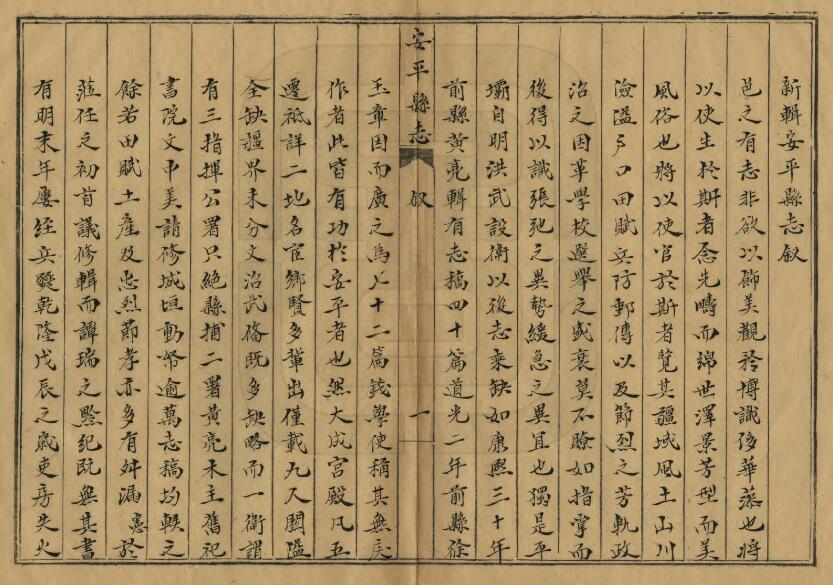 新輯安平縣志叙
邑之有志非欲以飾美觀矜博識侈華藻也將
以使生於斯者念先疇而綿世澤景芳型而美
風俗也將以使官於斯者覽其疆域風土山川
險溢户口田賦兵防郵傳以及節烈之芳軌政
治之因革學校選舉之盛衰莫不瞭如指掌而
後得以識張弛之異勢緩急之異宜也獨是平
壩自明洪武設衛以後志乘缺如康熙三十年
前縣黃亮輯有志稿四十篇道光二年前縣徐
安平縣志 叙 一
玉章因而廣之為八十二篇錢學使稱其無戾
作者此皆有功於安平者也然大成宮殿凡五
遷祗詳二地名宦鄉賢多輩出僅載九人關隘
全缺疆界未分文治武備既多缺略而一衛謂
有三指揮公署只絕縣捕二署黃亮未主舊祀
書院文中美請修城垣動帑逾萬志稿均軼之
餘若田賦土產及忠烈節孝亦多有舛漏憲於
蒞任之初首議修輯而譚瑞之黔紀既無其書
有明末年屢經兵燹乾隆戊辰之歲吏房失火